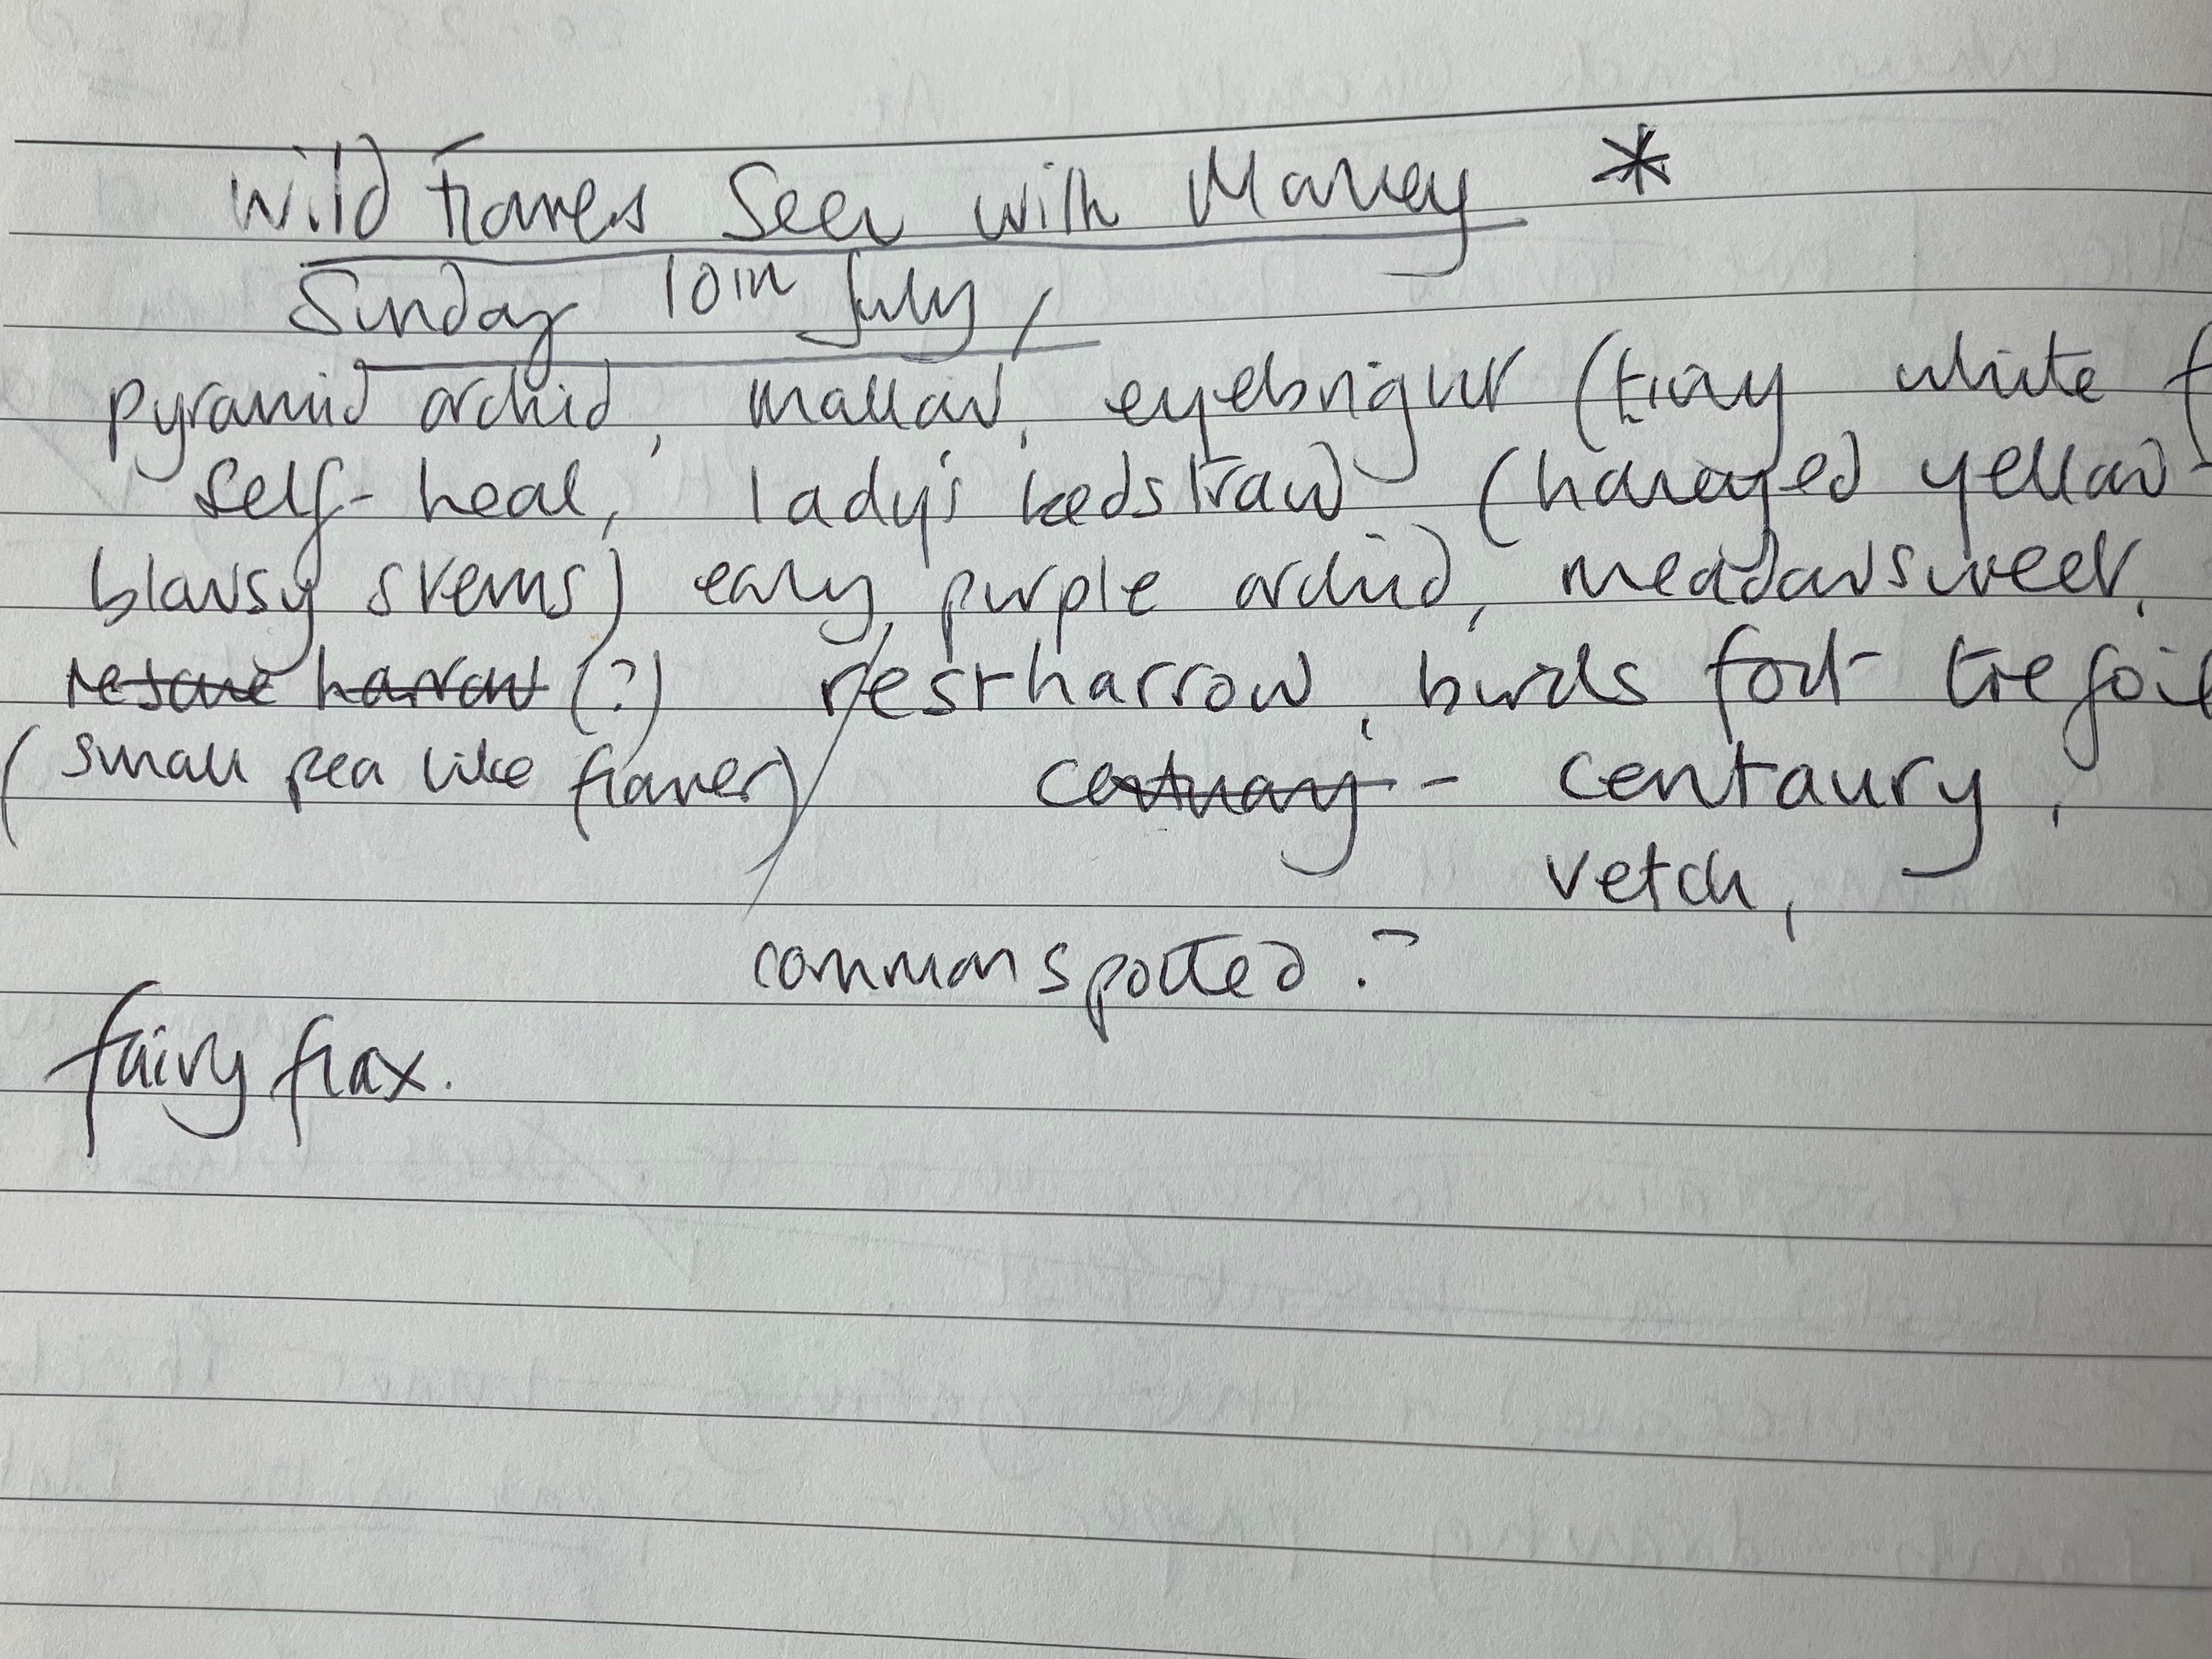 Wild flowers seen with Maney *
Sunday 10th July,
pyramid orchid, mallow, eyebright (tiny white f
self-heal, lady's bedstraw (honeyed yellow -
blowsy stems) early purple orchid, meadowsweet,
rescue harrow (?) restharrow, birds foot trefoil
(small pea like flower) centuary - centaury,
vetch,
common spotted?
fairy flax.